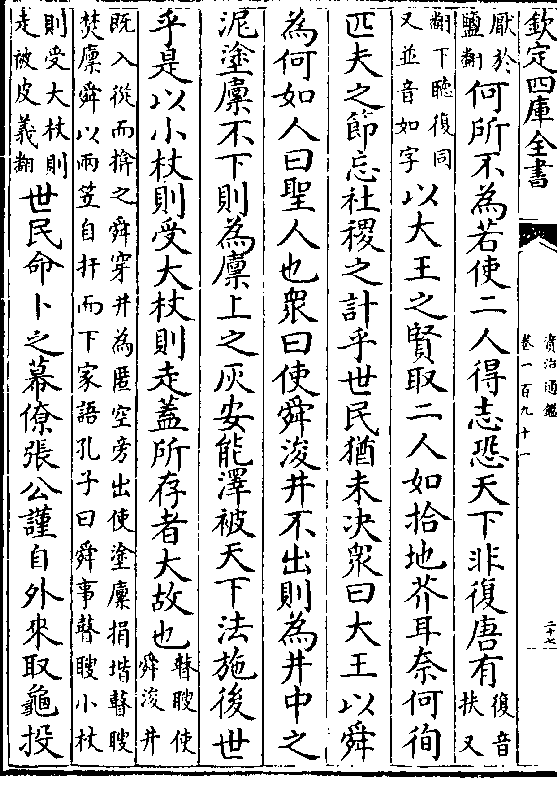 欽定四庫全書
資治通鑑
卷一百九十一
二十七
厭於
鹽翻何所不為若使二人得志恐天下非復唐有復音
扶又
翻下聽復同
又並音如字以大王之賢取二人如拾地芥耳奈何徇
匹夫之節忘社稷之計乎世民猶未決衆曰大王以舜
為何如人曰聖人也衆曰使舜浚井不出則為井中之
泥塗廩不下則為廩上之灰安能澤被天下法施後世
乎是以小杖則受大杖則走蓋所存者大故也瞽瞍使
舜浚井
既入從而揜之舜穿井為匿空旁出使塗廩捐堦瞽瞍
焚廩舜以兩笠自扞而下家語孔子曰舜事瞽瞍小杖
則受大杖則
走被皮義翻世民命卜之幕僚張公謹自外來取龜投